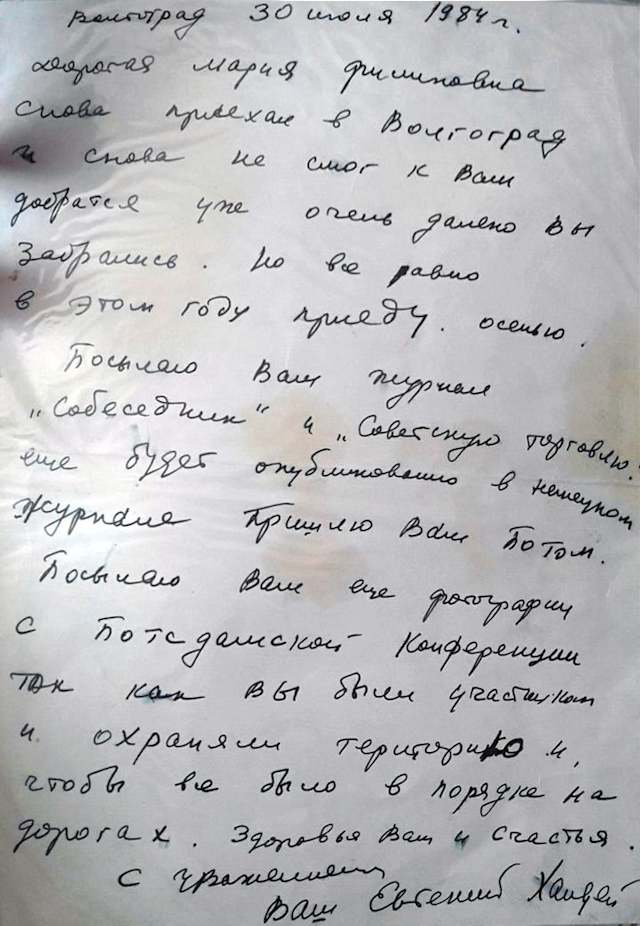 Волгоград 30 июля 1984 г.
Дорогая Мария Филиповна
Снова приехал в Волгоград
и снова не смог к Вам
добратся уже очень далеко Вы
забрались. Но все равно
в этом году приеду. осенью.
Посылаю Вам журнал
"Собеседник" и "Советскую торговлю"
еще будет опубликовано в немецком
журнале Пришлю Вам Потом.
Посылаю Вам еще фотографии
с Потсдамской Конференции
так как Вы были участником
и охраняли територию и,
чтобы все было в порядке на
дорогах. Здоровья Вам и счастья.
С уважением
Ваш Евгений Халдей